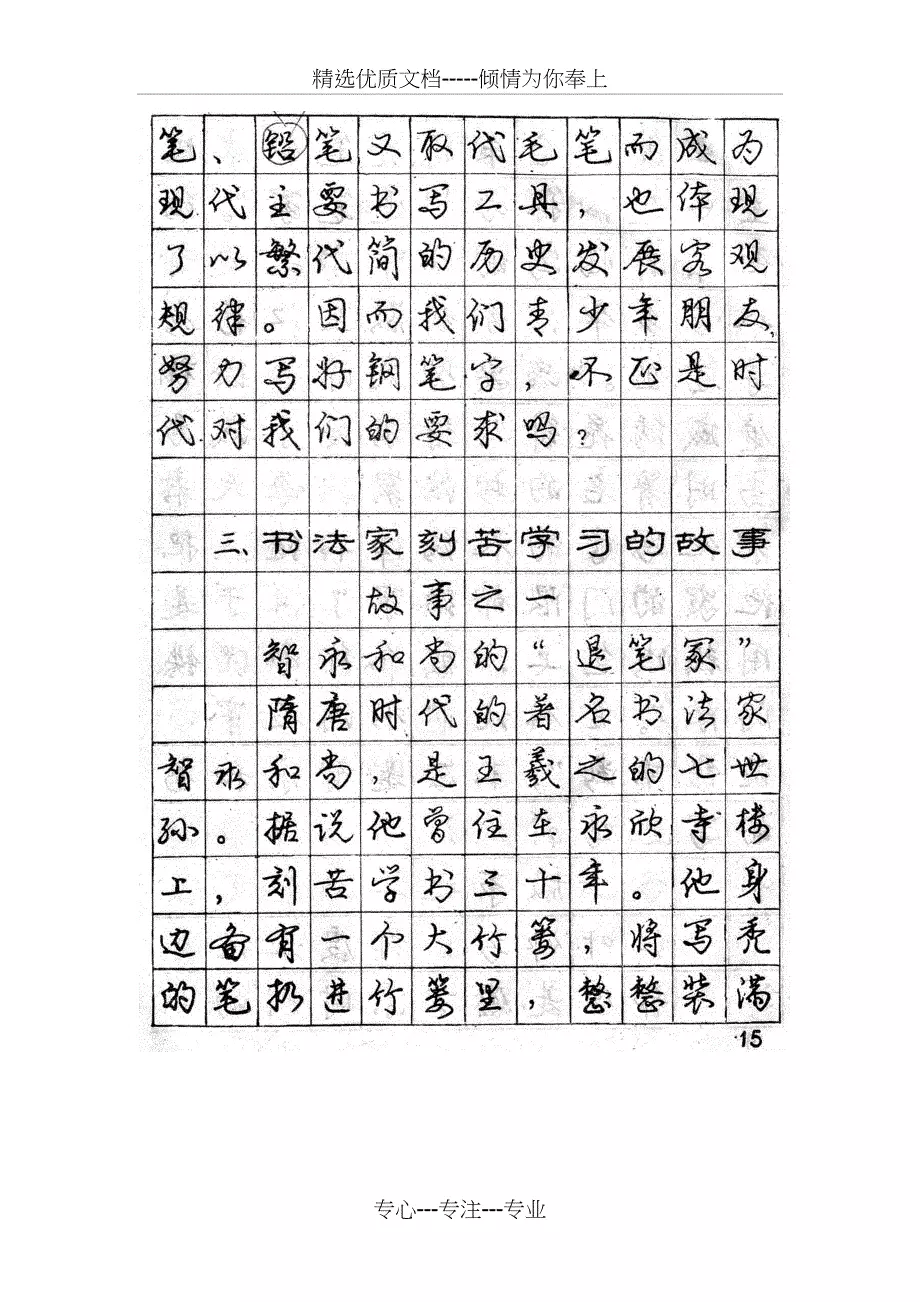 精选优质文档-----倾情为你奉上
笔、铅笔又取代毛笔而成为
现代主要书写工具，也体现
了以繁代简的历史发展客观
规律。因而我们青少年朋友，
努力写好钢笔字，不正是时
代对我们的要求吗？
三、书法家刻苦学习的故事
故事之一
智永和尚的“退笔冢”
隋唐时代的著名书法家
智永和尚，是王羲之的七世
孙。据说他曾住在永欣寺楼
上，刻苦学书三十年。他身
边备有一个大竹篓，将写秃
的笔扔进竹篓里，整整装满
15
专心---专注---专业